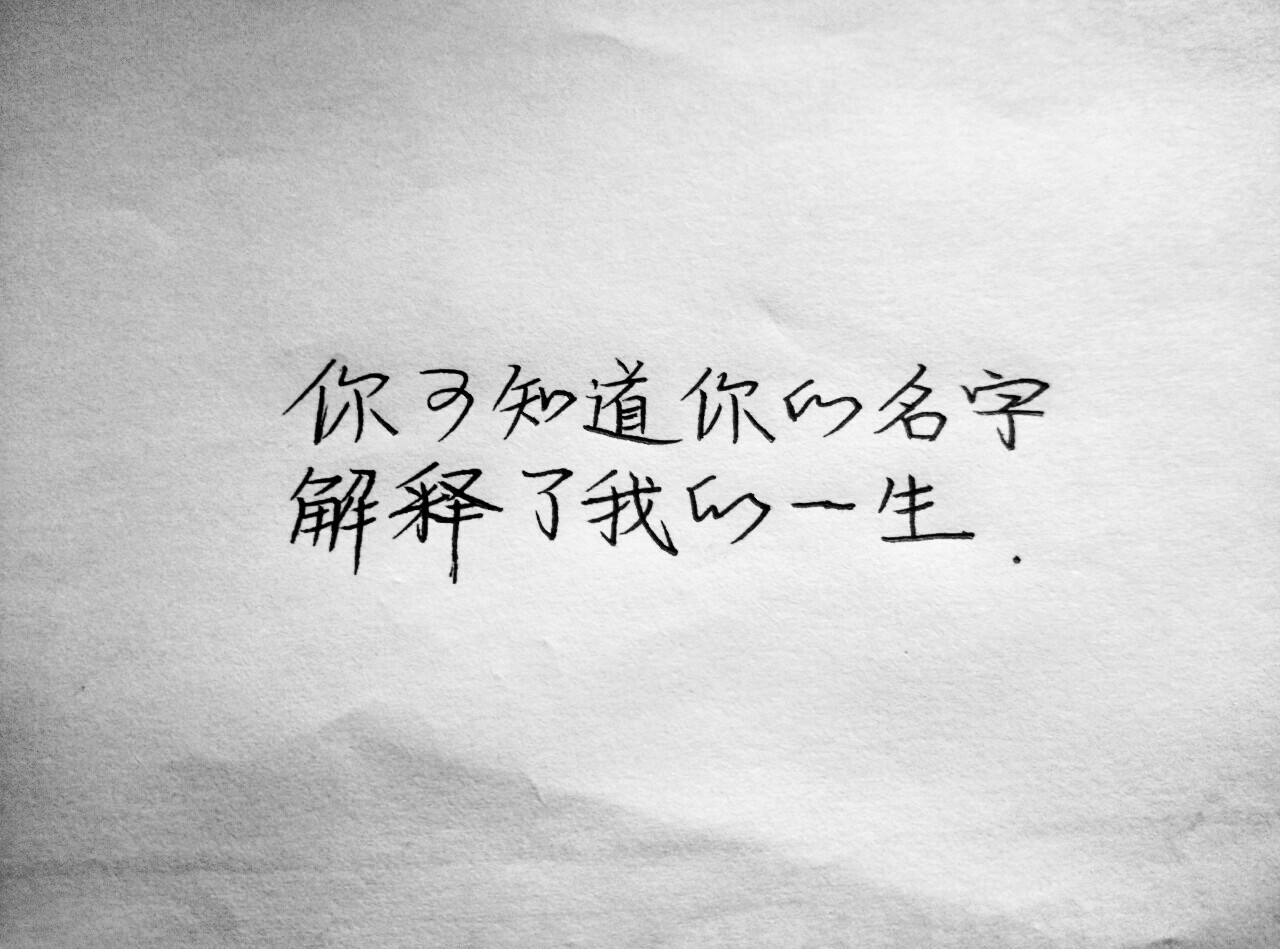 你可知道你的名字
解释了我的一生.